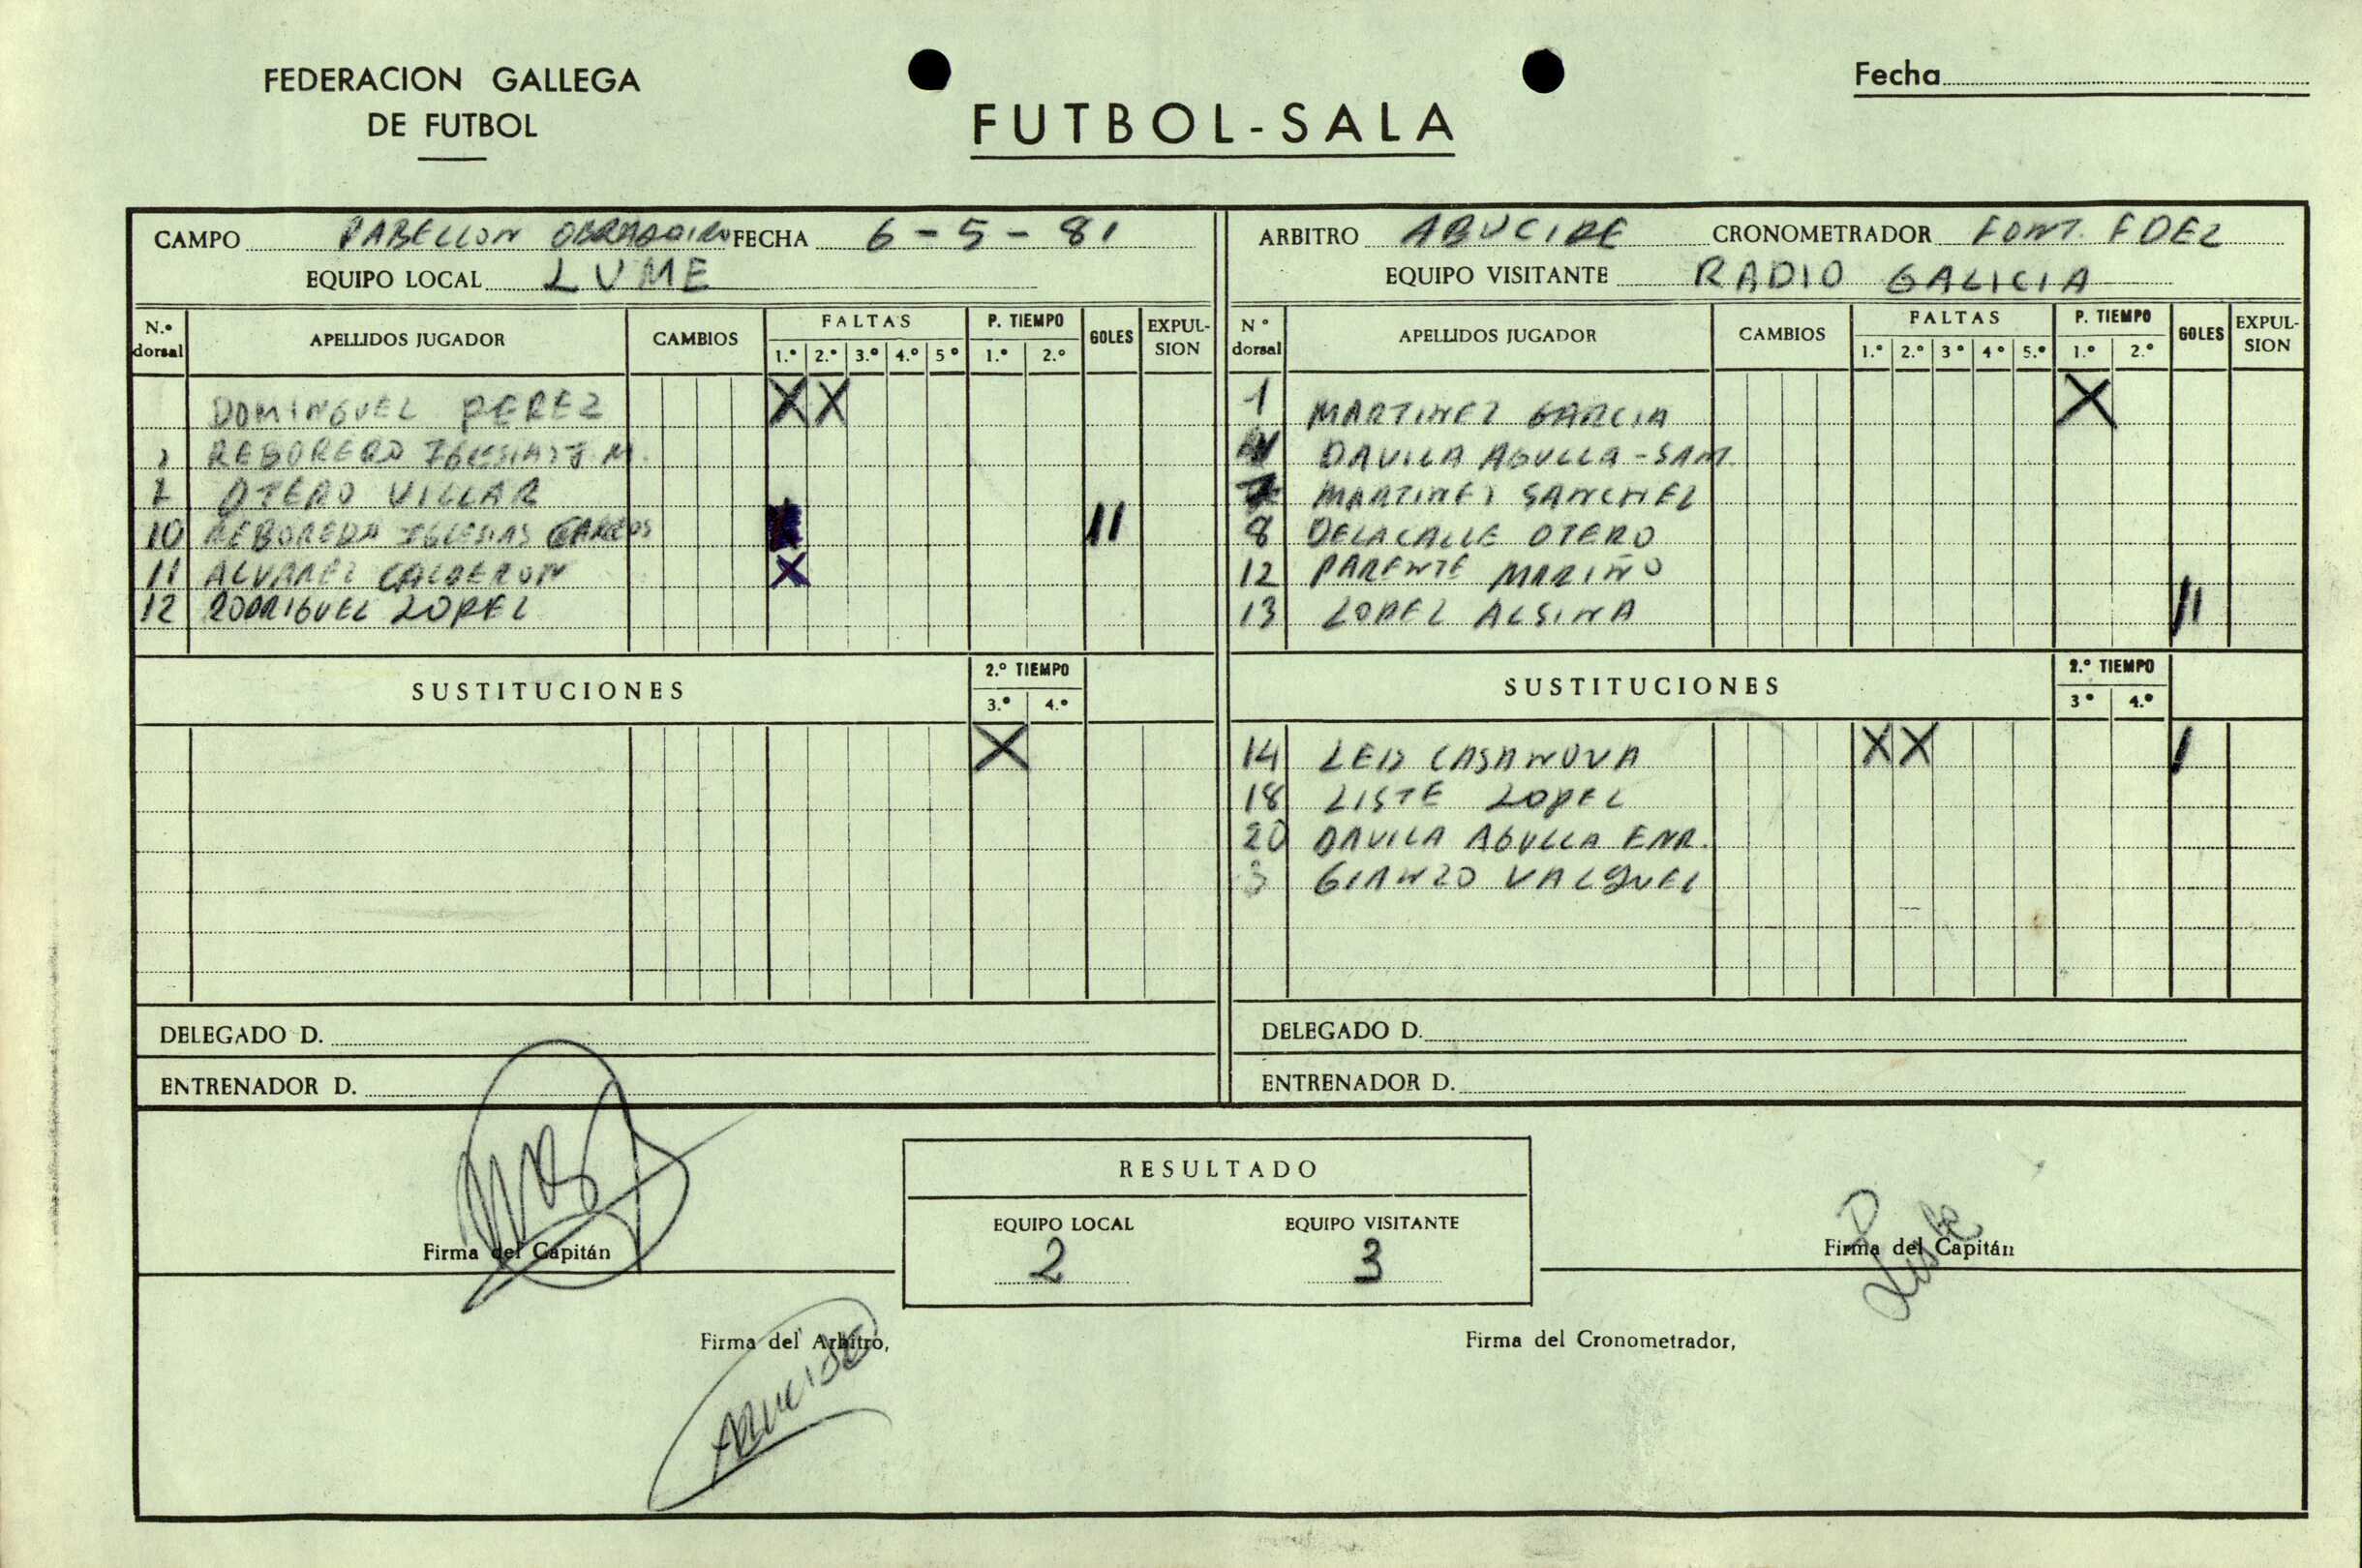 FEDERACION GALLEGA
DE FUTBOL
FUTBOL-SALA
Fecha
CAMPO PABELLON OBRADOIRO FECHA 6-5-81
EQUIPO LOCAL LUME
ARBITRO ABUCIDE CRONOMETRADOR FONT. FDEZ
EQUIPO VISITANTE RADIO GALICIA
N.º dorsal APELLIDOS JUGADOR CAMBIOS FALTAS 1.º 2.º 3.º 4.º 5º P. TIEMPO 1.º 2.º GOLES EXPULSION
DOMINGUEZ PEREZ X X
REBOREDO IGLESIAS J.M.
7 OTERO VILLAR
10 REBOREDO IGLESIAS CARLOS II
11 ALVAREZ CALDERON X
12 RODRIGUEZ LOPEZ
SUSTITUCIONES 2.º TIEMPO 3.º 4.º
X
DELEGADO D.
ENTRENADOR D.
Nº dorsal APELLIDOS JUGADOR CAMBIOS FALTAS 1.º 2.º 3º 4º 5.º P. TIEMPO 1.º 2.º GOLES EXPULSION
1 MARTINEZ GARCIA X
DAVILA AGULLA-SANT
MARTINEZ SANCHEZ
8 DELACALLE OTERO
12 PARENTE MARIÑO
13 LOPEZ ALSINA II
SUSTITUCIONES 2.º TIEMPO 3º 4.º
14 LEIS CASANOVA X X I
18 LISTE LOPEZ
20 DAVILA AGULLA ENR.
3 GIANZO VAZQUEZ
DELEGADO D.
ENTRENADOR D.
RESULTADO
EQUIPO LOCAL EQUIPO VISITANTE
2 3
Firma del Capitán
Firma del Capitán
Liste
Firma del Arbitro,
Firma del Cronometrador,